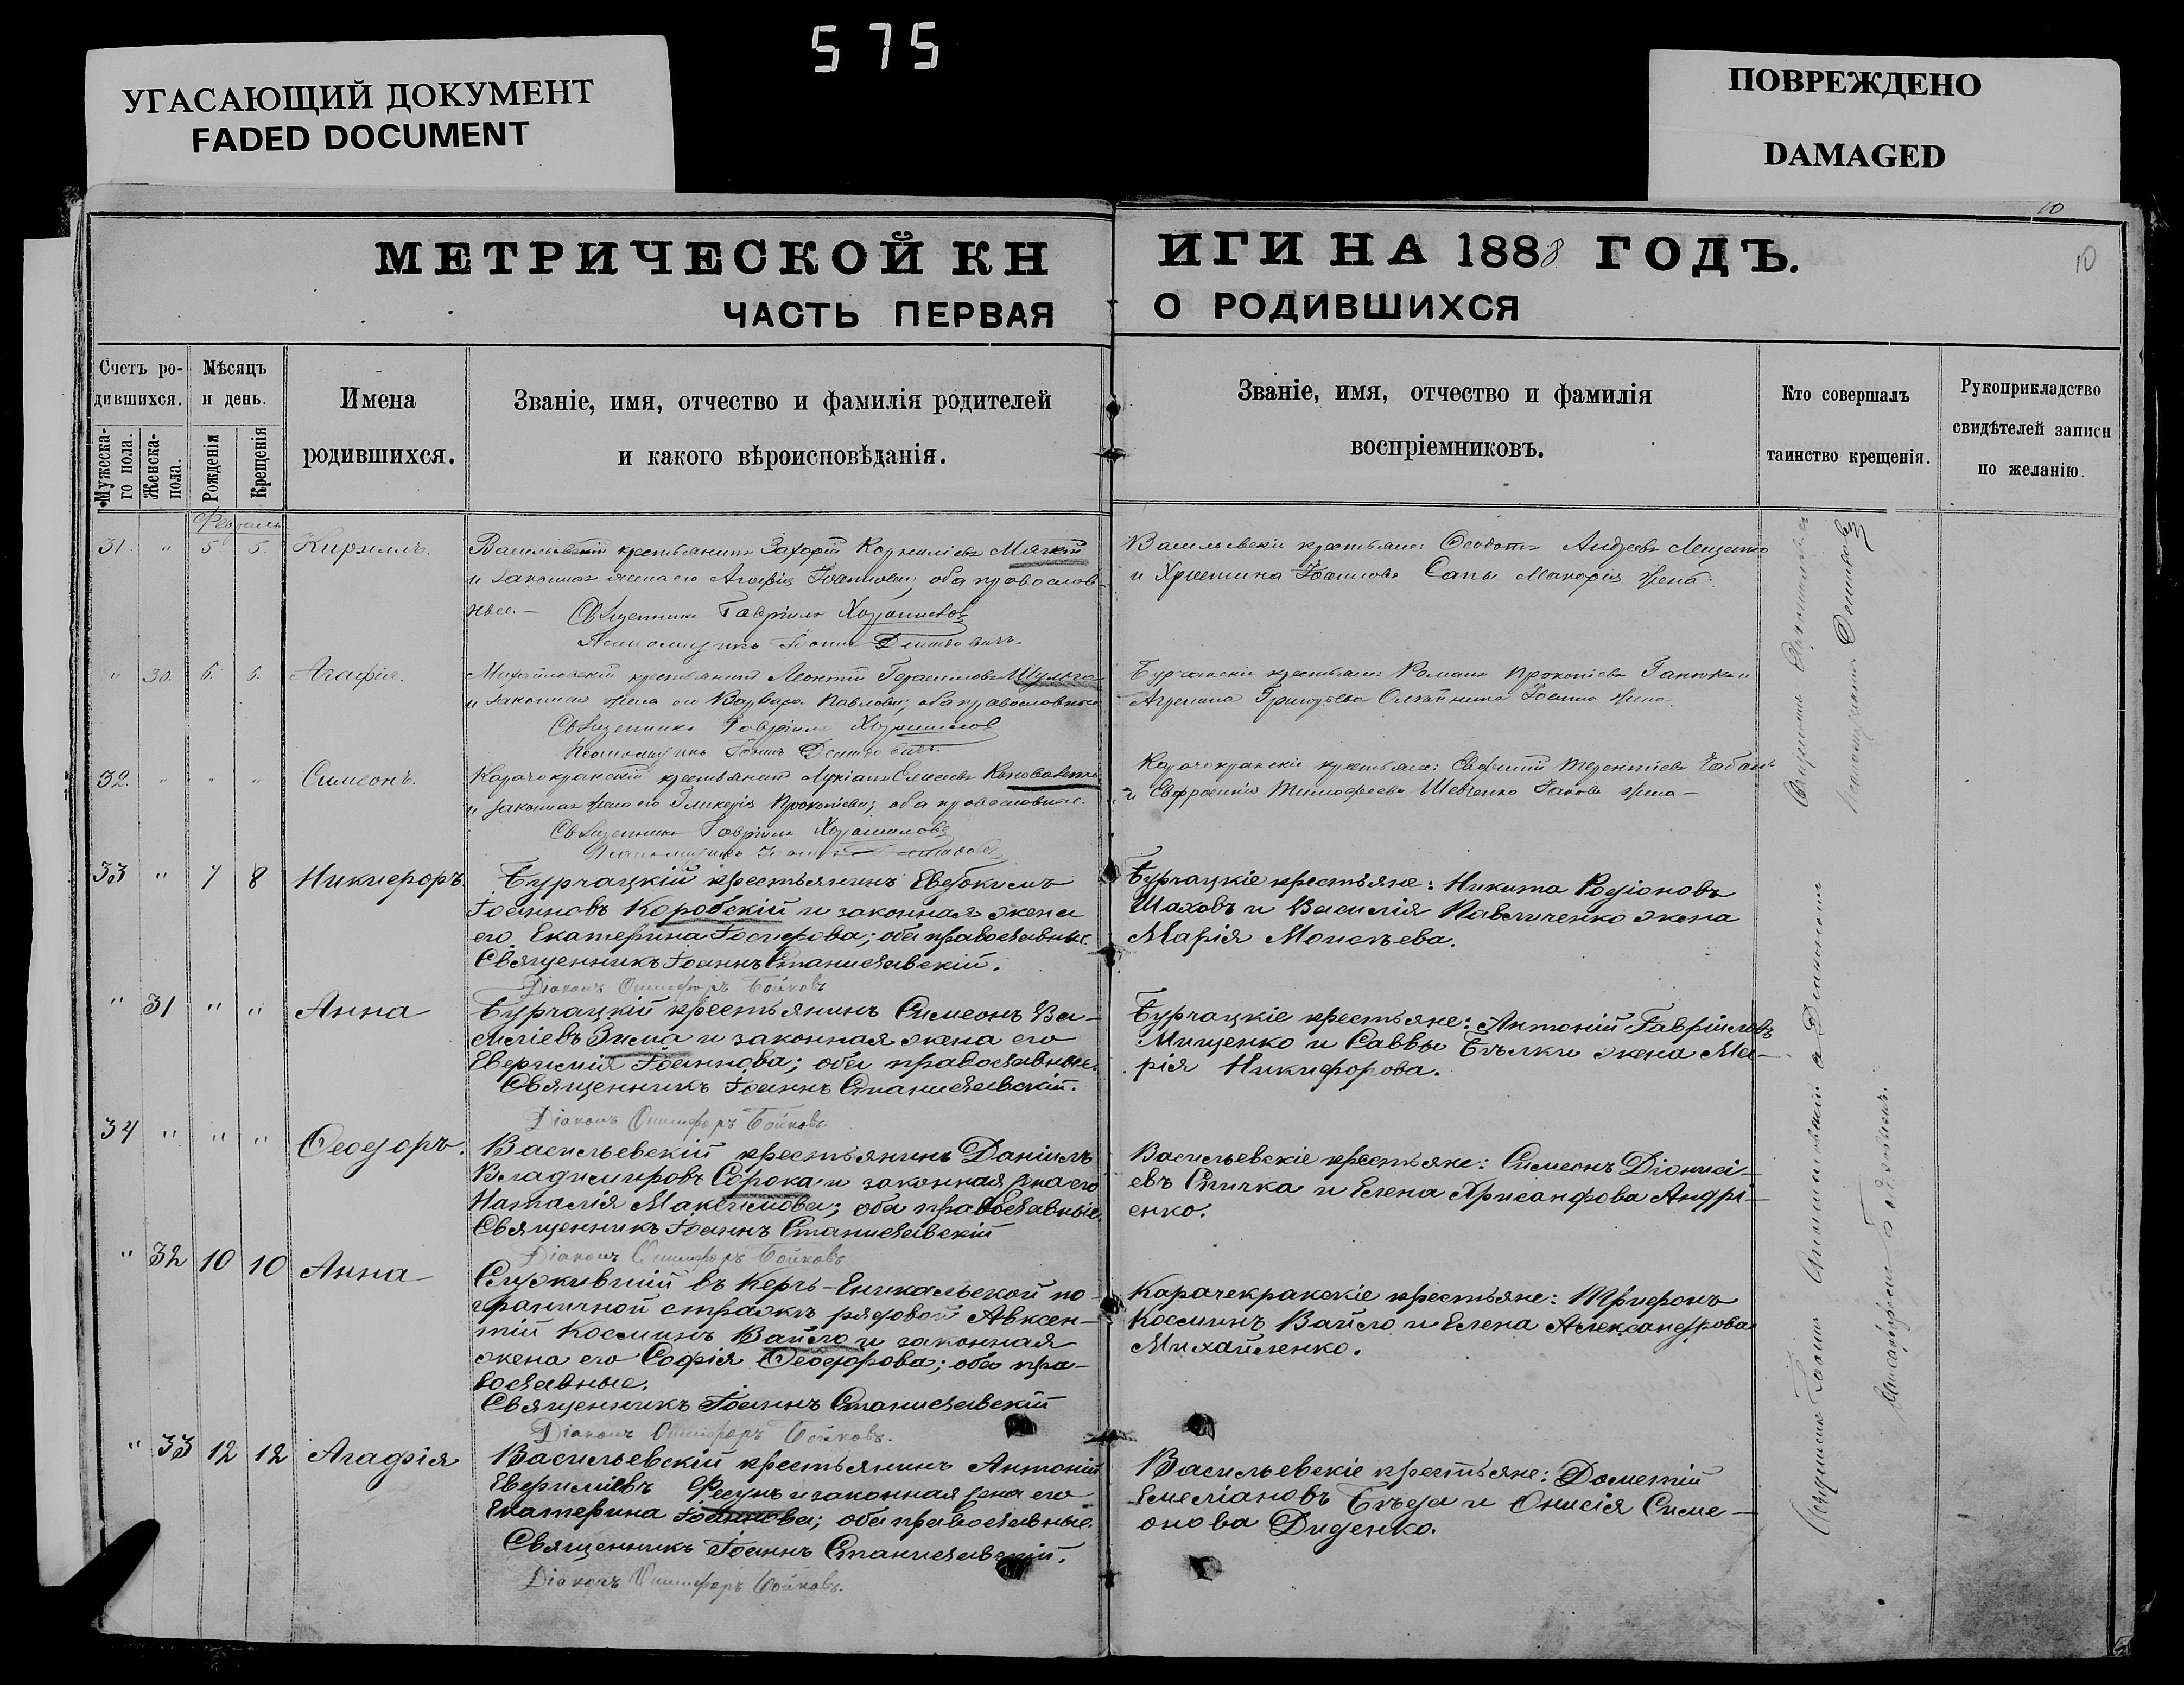 575
УГАСАЮЩИЙ ДОКУМЕНТ
FADED DOCUMENT
ПОВРЕЖДЕНО
DAMAGED
10
10
МЕТРИЧЕСКОЙ КН
ИГИ НА 1888 ГОДЪ.
ЧАСТЬ ПЕРВАЯ
О РОДИВШИХСЯ
Счетъ ро-
дившихся.
Мужеска-
го пола.
Женска-
пола.
Мѣсяцъ
и день.
Рожденія
Крещенія
Имена
родившихся.
Званіе, имя, отчество и фамилія родителей
и какого вѣроисповѣданія.
Званіе, имя, отчество и фамилія
воспріемниковъ.
Кто совершалъ
таинство крещенія.
Рукоприкладство
свидѣтелей записи
по желанію.
Февраль
31. " 5. 5. Кириллъ.
Васильевскій крестьянинъ Захарій Корниліевъ Мягкій
и законная жена его Агафія Іоаннова; оба православ-
ные.-
Священникъ Гавріилъ
Псаломщикъ Іоаннъ
Васильевскіе крестьяне: Ѳеодотъ Андреевъ Лещенко
и Христина Іоаннова Сапы Макарія жена.
" 30. 6. 6. Агафія.
Михайловскій крестьянинъ Леонтій Герасимовъ Шульга
и законная жена его Варвара Павлова; оба православные
Священникъ Гавріилъ
Псаломщикъ Іоаннъ
Бурчакскіе крестьяне: Романъ Прокопіевъ и
Агрепина Григорьева Олейника Іоанна жена.
32. " " " Симеонъ.
Карачокракскій крестьянинъ Лукіанъ Елисеевъ Коноваленко
и законная жена его Гликерія Прокопіева; оба православные.
Священникъ Гавріилъ
Псаломщикъ
Карачокракскіе крестьяне: Евфимій Терентіевъ Чабанъ
и Евфросинія Тимофеева Шевченко Іакова жена -
33 " 7 8 Никифоръ.
Бурчацкій крестьянинъ Евдокимъ
Іоанновъ Коробскій и законная жена
его Екатерина Іосифова; оба православные.
Священникъ Іоаннъ Станиславскій.
Діаконъ Онисифоръ Бойковъ
Бурчацкіе крестьяне: Никита Родіоновъ
Шаховъ и Василія Павличенко жена
Марія Моисѣева.
" 31 " " Анна
Бурчацкій крестьянинъ Симеонъ Ва-
силіевъ Зима и законная жена его
Евфимія Іоаннова; оба православные.
Священникъ Іоаннъ Станиславскій.
Діаконъ Онисифоръ Бойковъ.
Бурчацкіе крестьяне: Антоній Гавріиловъ
Мищенко и Саввы Бѣлки жена Ма-
рія Никифорова.
34 " " " Ѳеодоръ.
Васильевскій крестьянинъ Даніилъ
Владимировъ Сорока и законная жена его
Наталія Максимова; оба православные.
Священникъ Іоаннъ Станиславскій
Діаконъ Онисифоръ Бойковъ
Васильевскіе крестьяне: Симеонъ Діонисі-
евъ Спичка и Елена Хрисанфова Андрі-
енко.
" 32 10 10 Анна
Служившій въ Керчь-Еникальской по-
граничной стражѣ рядовой Авксен-
тій Косминъ Вайло и законная
жена его Софія Ѳеодорова; оба пра-
вославные.
Священникъ Іоаннъ Станиславскій
Діаконъ Онисифоръ Бойковъ.
Карачекракскіе крестьяне: Трифонъ
Косминъ Вайло и Елена Александрова
Михайленко.
" 33 12 12 Агафія
Васильевскій крестьянинъ Антоній
Евфиміевъ Фесунъ и законная жена его
Екатерина Іоаннова; оба православные.
Священникъ Іоаннъ Станиславскій.
Діаконъ Онисифоръ Бойковъ.
Васильевскіе крестьяне: Дометій
Емеліановъ Бѣда и Онисія Симе-
онова Диденко.